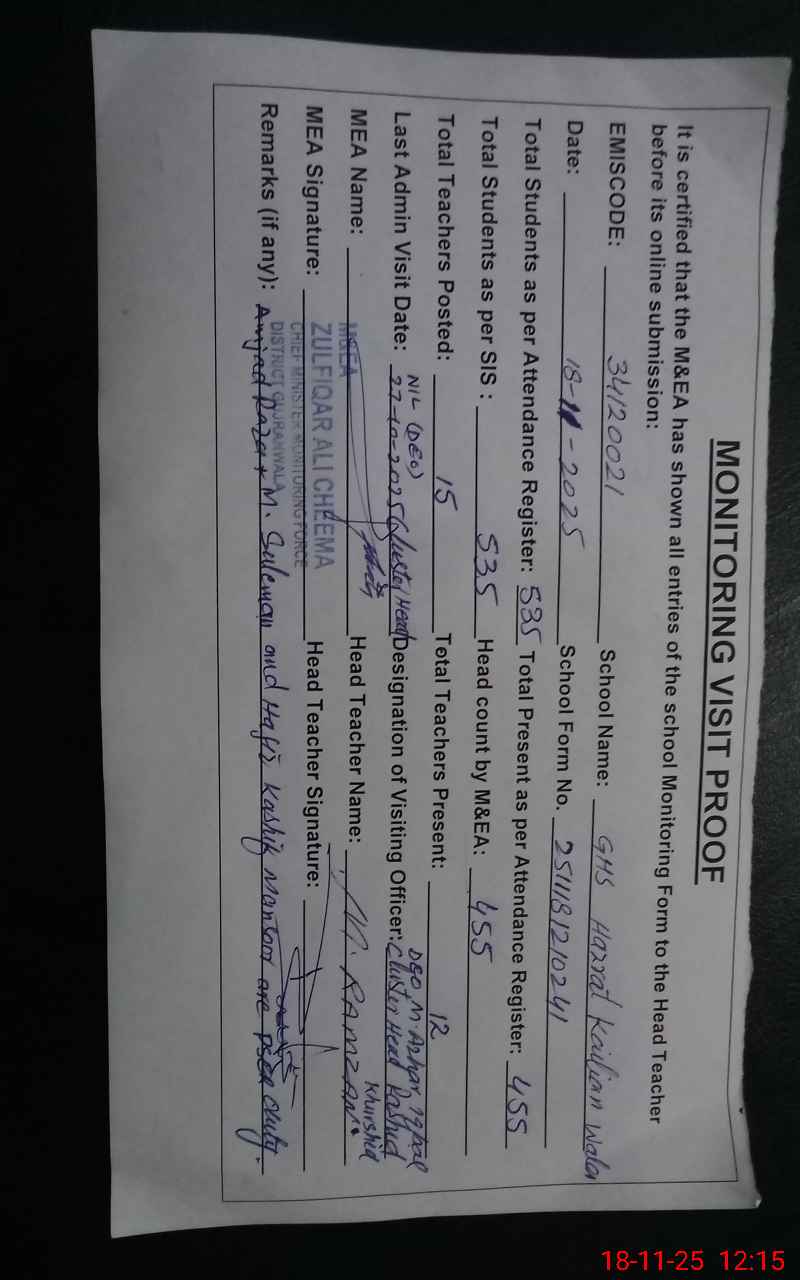 MONITORING VISIT PROOF
It is certified that the M&EA has shown all entries of the school Monitoring Form to the Head Teacher
before its online submission:
EMISCODE: 34120021 School Name: GHS Hazrat Kailian Wala
Date: 18-11-2025 School Form No. 2511181210241
Total Students as per Attendance Register: 535 Total Present as per Attendance Register: 455
Total Students as per SIS : 535 Head count by M&EA: 455
Total Teachers Posted: 15 Total Teachers Present: 12
NIL (DEO) DEO, M. Azhar Iqbal
Last Admin Visit Date: 27-10-2025 Cluster Head Designation of Visiting Officer: Cluster Head Rashid
Khurshid
MEA Name: Head Teacher Name: M. RAMZAN
M&EA
ZULFIQAR ALI CHEEMA
MEA Signature: Head Teacher Signature:
CHIEF MINISTER MONITORING FORCE
DISTRICT GUJRANWALA
Remarks (if any): Amjad Raza + M. Suleman and Hafiz Kashif Mansoor are duty.
18-11-25 12:15